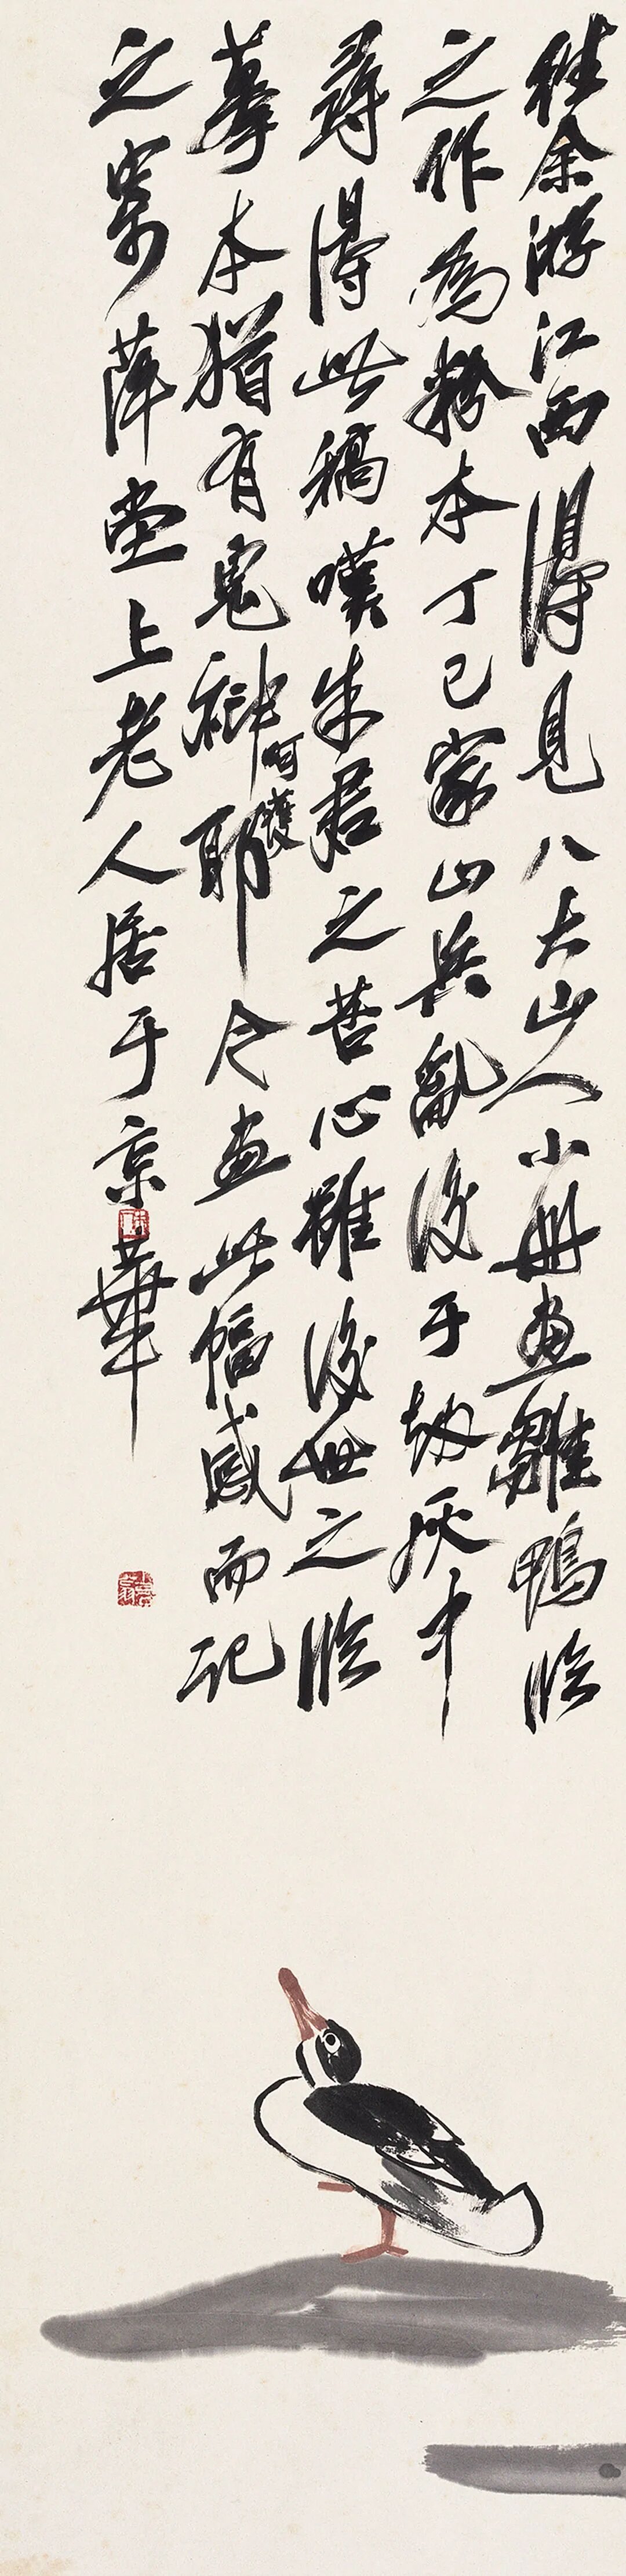 往余游江西得見八大山人小冊畫雛鴨臨
之作為粉本丁巳家山兵亂後于劫灰中
尋得此稿嘆朱君之苦心雖後世之臨
摹本猶有鬼神呵護耶今畫此幅感而記
之寄萍堂上老人居于京華